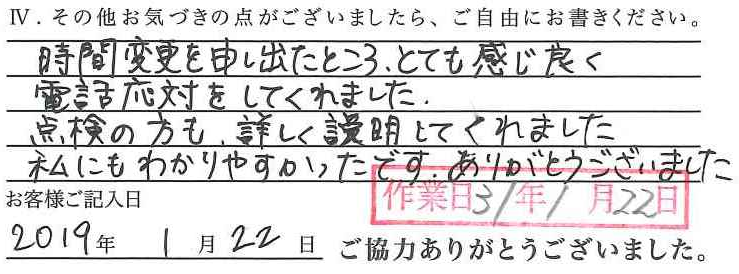 Ⅳ．その他お気づきの点がございましたら、ご自由にお書きください。
時間変更を申し出たところ、とても感じ良く
電話応対をしてくれました.
点検の方も、詳しく説明してくれました
私にもわかりやすかったです.ありがとうございました
お客様ご記入日
作業日31年1月22日
2019年 1月22日 ご協力ありがとうございました。